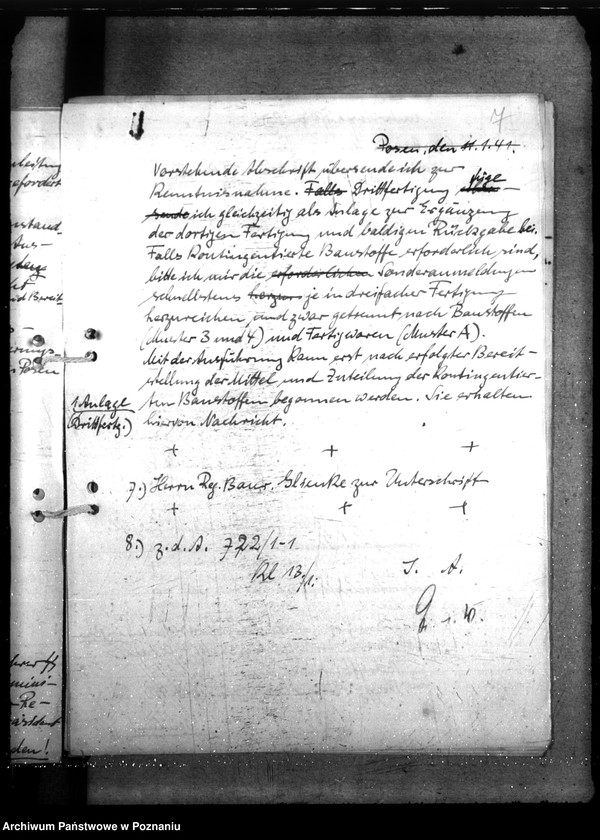 7
Posen, den 11.1.41.
Vorstehende Abschrift übersende ich zur
Kenntnisnahme. Falls Drittfertigung füge
sende ich gleichzeitig als Anlage zur Ergänzung
der dortigen Fertigung und baldigen Rückgabe bei.
Falls Kontingentierte Baustoffe erforderlich sind,
bitte ich mir die erforderlichen Sonderanmeldungen
schnellstens herzu- je in dreifacher Fertigung
herzureichen, und zwar getrennt nach Baustoffen
(Muster 3 und 4) und Fertigwaren (Muster A).
Mit der Ausführung kann erst nach erfolgter Bereit-
stellung der Mittel und Zuteilung der Kontingentier-
ten Baustoffen begonnen werden. Sie erhalten
hiervon Nachricht.
1 Anlage
(Drittfertg.)
7.) Herrn Rg. Baur. Glienke zur Unterschrift
8.) z. d. A. 722/1-1
13/1.
I. A.
nleitung
efordert
nstand
Aus-
nd Bereit-
rungs
Posen
hrer SS
mini-
-Re-
räsident
den!
Archiwum Państwowe w Poznaniu